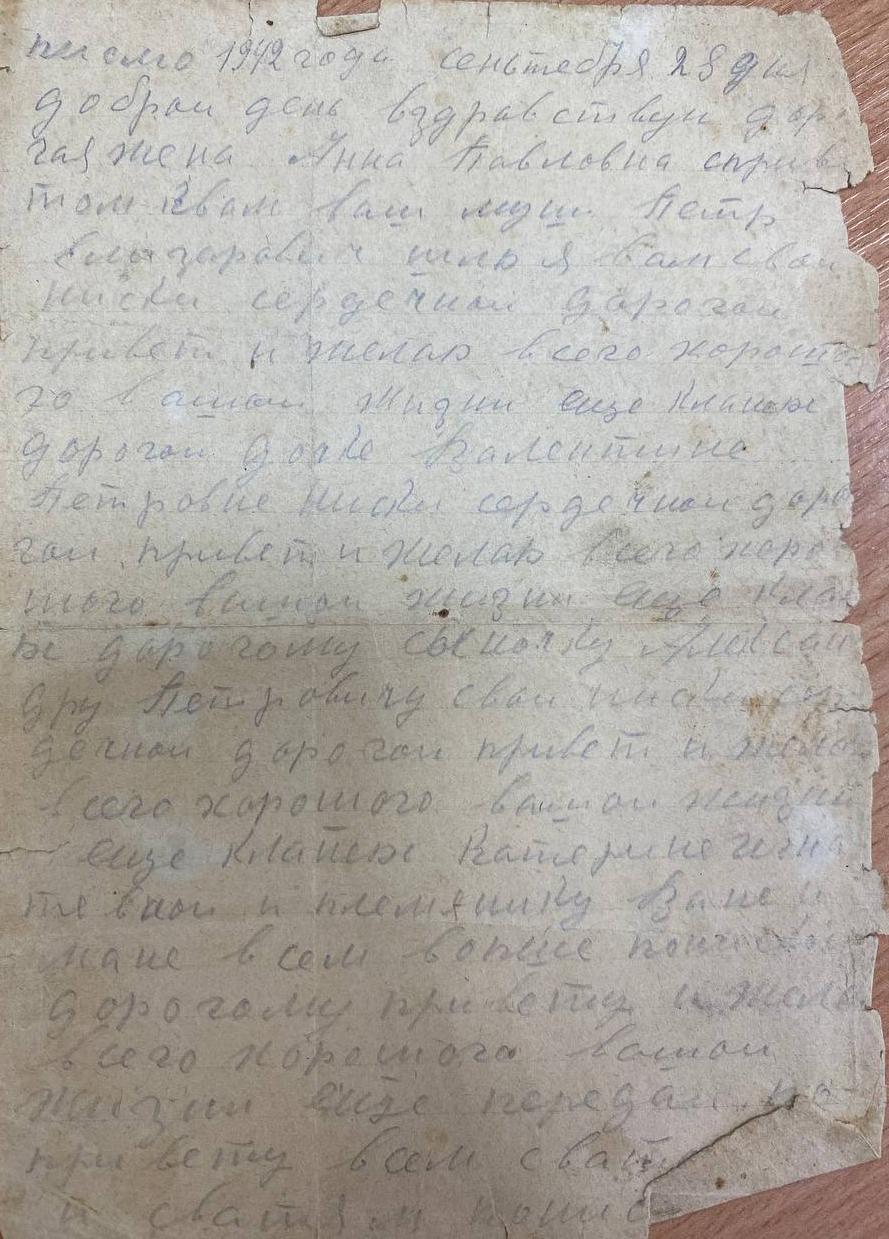 писмо 1942 года сеньтебря 28 дня
доброи день вздравствуи доро
гая жена Анна Павловна сприве
том квам ваш муш Петр
шлю я вам свои
ниски сердечнои дорогои
привет и желаю всего хорошо
го вашои жизни еще кланеюс
дорогои дочке Валентине
Петровне ниски сердечнои доро
гои привет и желаю всего хоро
шого вашои жизни еще кланею
дорогому сыночку Алексан
дру Петровичу свои ниски сер
дечнои дорогои привет и желаю
всего хорошого вашои жизни
еще кланеюс Катерине
и племянику Ване и
мане всем вопще
дорогому привету и желаю
всего хорошого вашои
жизни еще передаи по
привету всем сватя
и сватям